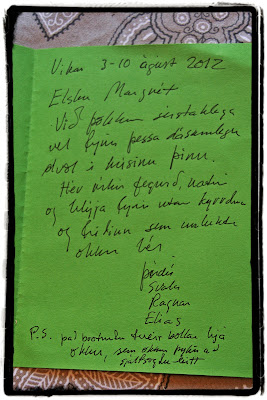 Vikan 3-10 ágúst 2012
Elsku Margrét
Við þökkum sérstaklega
vel fyrir þessa dásamlegu
dvöl í húsinu þínu.
Hér ríkir fegurð,
og hlýja fyrir utan kyrrðina
og friðinn sem
okkur hér.
Þórdís
Ragnar
Elías
P.S. það brotnuðu tveir bollar hjá
okkur, sem okkur þykir að
sjálfsögðu leitt